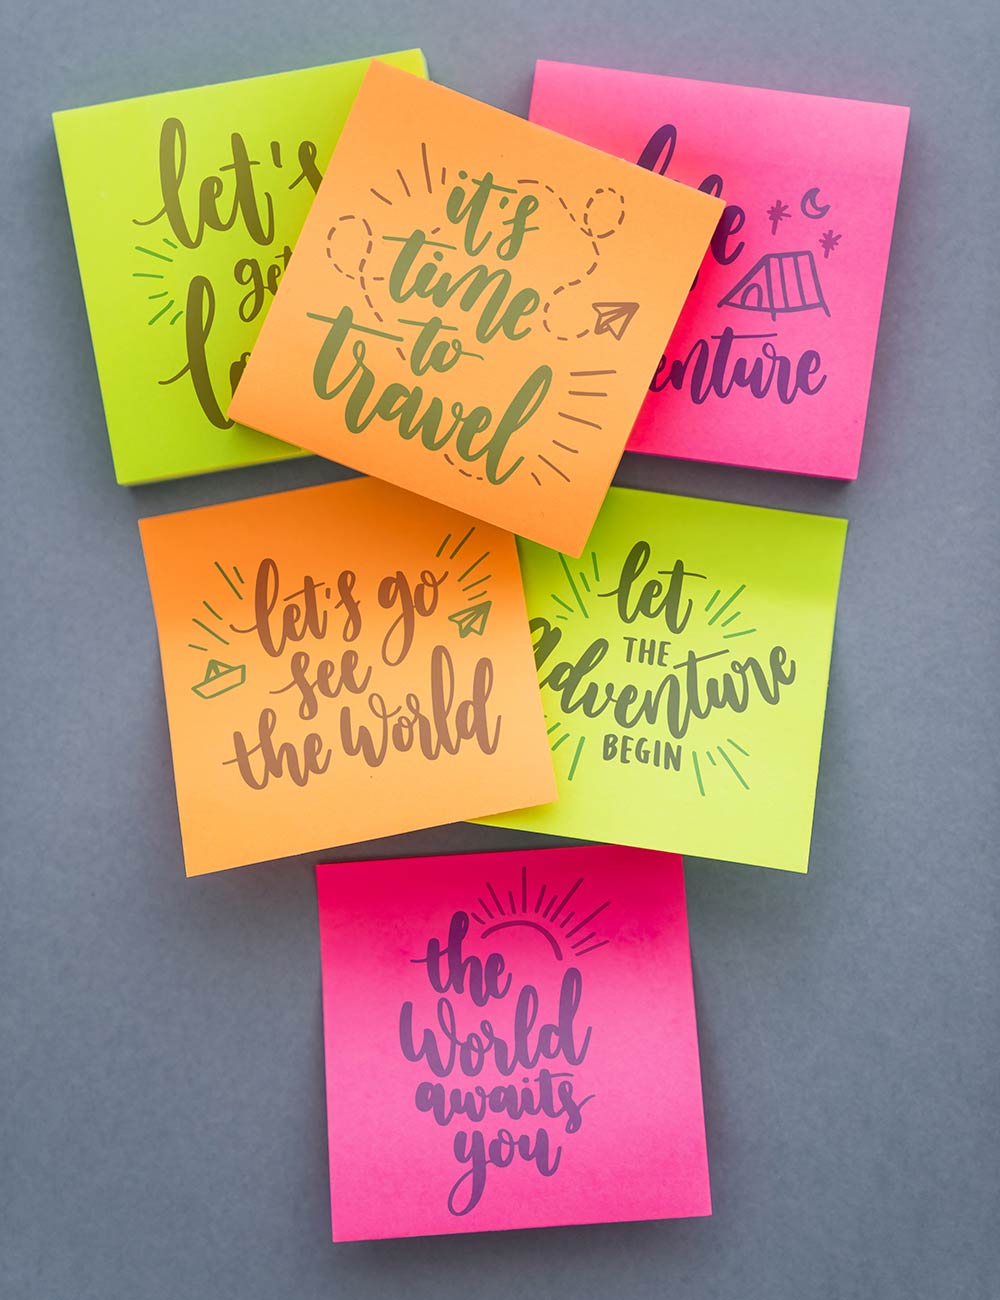 let's
get
it's
time
to
travel
enture
let's go
see
the world
let
THE
adventure
BEGIN
the
world
awaits
you